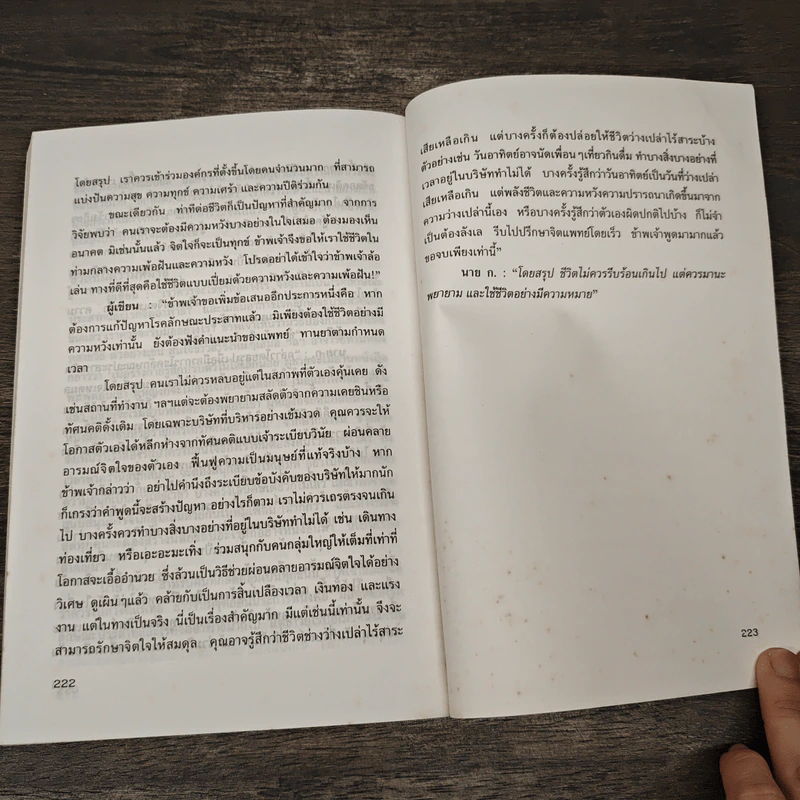 โดยสรุป เราควรเข้าร่วมองค์กรที่ตั้งขึ้นโดยคนจำนวนมาก ที่สามารถ
แบ่งปันความสุข ความทุกข์ ความเศร้า และความปีติร่วมกัน
ขณะเดียวกัน ท่าทีต่อชีวิตก็เป็นปัญหาที่สำคัญมาก จากการ
วิจัยพบว่า คนเราจะต้องมีความหวังบางอย่างในใจเสมอ ต้องมองเห็น
อนาคต มิเช่นนั้นแล้ว จิตใจก็จะเป็นทุกข์ ข้าพเจ้าจึงขอให้เราใช้ชีวิตใน
ท่ามกลางความเพ้อฝันและความหวัง โปรดอย่าได้เข้าใจว่าข้าพเจ้าล้อ
เล่น ทางที่ดีที่สุดคือใช้ชีวิตแบบเปี่ยมด้วยความหวังและความเพ้อฝัน!”
ผู้เขียน : “ข้าพเจ้าขอเพิ่มข้อเสนออีกประการหนึ่งคือ หาก
ต้องการแก้ปัญหาโรคลักษณะประสาทแล้ว มิเพียงต้องใช้ชีวิตอย่างมี
ความหวังเท่านั้น ยังต้องฟังคำแนะนำของแพทย์ ทานยาตามกำหนด
เวลา
โดยสรุป คนเราไม่ควรหลบอยู่แต่ในสภาพที่ตัวเองคุ้นเคย ดัง
เช่นสถานที่ทำงาน ฯลฯแต่จะต้องพยายามสลัดตัวจากความเคยชินหรือ
ทัศนคติดั้งเดิม โดยเฉพาะบริษัทที่บริหารอย่างเข้มงวด คุณควรจะให้
โอกาสตัวเองได้หลีกห่างจากทัศนคติแบบเจ้าระเบียบวินัย ผ่อนคลาย
อารมณ์จิตใจของตัวเอง ฟื้นฟูความเป็นมนุษย์ที่แท้จริงบ้าง หาก
ข้าพเจ้ากล่าวว่า อย่าไปคำนึงถึงระเบียบข้อบังคับของบริษัทให้มากนัก
ก็เกรงว่าคำพูดนี้จะสร้างปัญหา อย่างไรก็ตาม เราไม่ควรเถรตรงจนเกิน
ไป บางครั้งควรทำบางสิ่งบางอย่างที่อยู่ในบริษัททำไม่ได้ เช่น เดินทาง
ท่องเที่ยว หรือเอะอะมะเทิ่ง ร่วมสนุกกับคนกลุ่มใหญ่ให้เต็มที่เท่าที่
โอกาสจะเอื้ออำนวย ซึ่งล้วนเป็นวิธีช่วยผ่อนคลายอารมณ์จิตใจได้อย่าง
วิเศษ ดูเผินๆแล้ว คล้ายกับเป็นการสิ้นเปลืองเวลา เงินทอง และแรง
งาน แต่ในทางเป็นจริง นี่เป็นเรื่องสำคัญมาก มีแต่เช่นนี้เท่านั้น จึงจะ
สามารถรักษาจิตใจให้สมดุล คุณอาจรู้สึกว่าชีวิตช่างว่างเปล่าไร้สาระ
222
เสียเหลือเกิน แต่บางครั้งก็ต้องปล่อยให้ชีวิตว่างเปล่าไร้สาระบ้าง
ตัวอย่างเช่น วันอาทิตย์อาจนัดเพื่อนๆเที่ยวกินดื่ม ทำบางสิ่งบางอย่างที่
เวลาอยู่ในบริษัททำไม่ได้ บางครั้งรู้สึกว่าวันอาทิตย์เป็นวันที่ว่างเปล่า
เสียเหลือเกิน แต่พลังชีวิตและความหวังความปรารถนาเกิดขึ้นมาจาก
ความว่างเปล่านี้เอง หรือบางครั้งรู้สึกว่าตัวเองผิดปกติไปบ้าง ก็ไม่จำ
เป็นต้องลังเล รีบไปปรึกษาจิตแพทย์โดยเร็ว ข้าพเจ้าพูดมามากแล้ว
ขอจบเพียงเท่านี้”
นาย ก. : “โดยสรุป ชีวิตไม่ควรรีบร้อนเกินไป แต่ควรมานะ
พยายาม และใช้ชีวิตอย่างมีความหมาย”
223